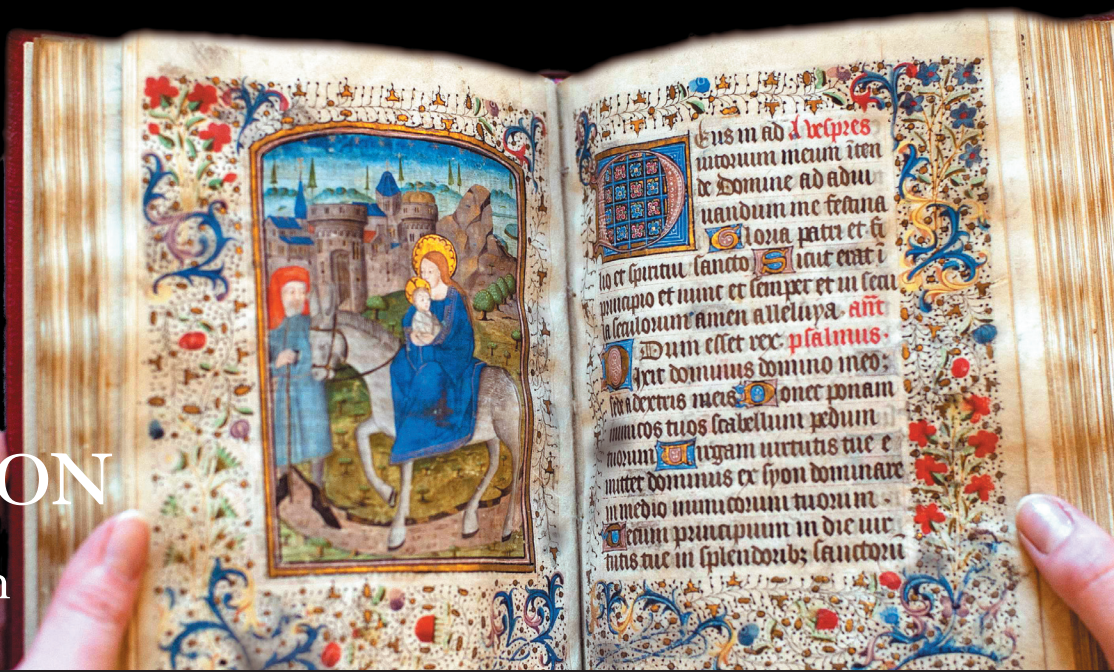 ON
n
Deus in ad A vespres
iutorium meum inten
de Domine ad adiu
uandum me festina
Gloria patri et fi
lio et spiritui sancto Sicut erat ī
principio et nunc et semper et in secu
la seculorum amen alleluya añt
Dum esset rex psalmus
Dixit dominus domino meo:
sede a dextris meis Donec ponam
inimicos tuos scabellum pedum
tuorum Uirgam uirtutis tue e
mittet dominus ex syon dominare
in medio inimicorum tuorum
Tecum principium in die uir
tutis tue in splendoribꝫ sanctorū